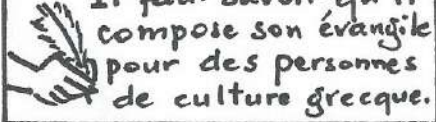 compose son évangile
pour des personnes
de culture grecque.